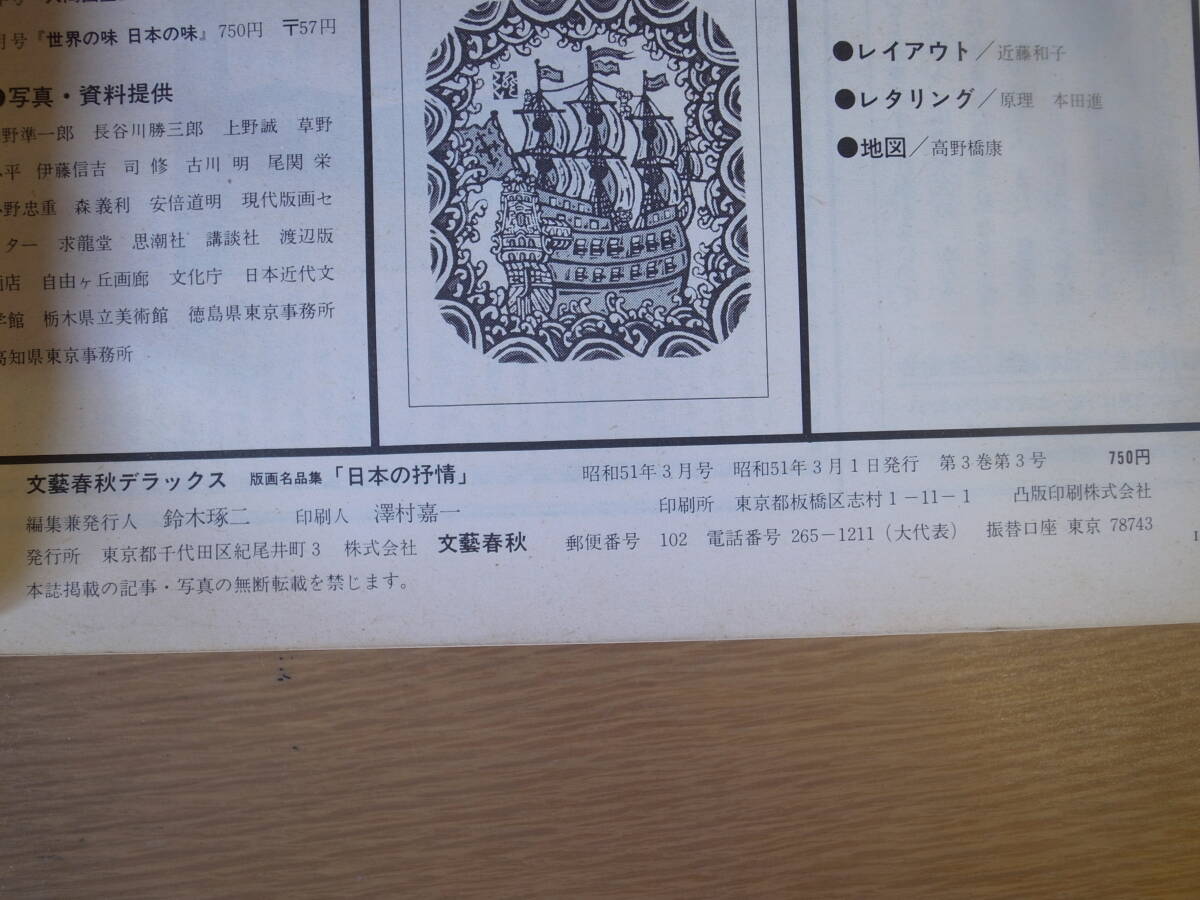 月号『世界の味 日本の味』750円 〒57円
●写真・資料提供
野準一郎 長谷川勝三郎 上野誠 草野
平 伊藤信吉 司 修 古川 明 尾関 栄
野忠重 森義利 安倍道明 現代版画セ
ター 求龍堂 思潮社 講談社 渡辺版
画店 自由ヶ丘画廊 文化庁 日本近代文
学館 栃木県立美術館 徳島県東京事務所
高知県東京事務所
●レイアウト/近藤和子
●レタリング/原理 本田進
●地図/高野橋康
文藝春秋デラックス 版画名品集「日本の抒情」 昭和51年3月号 昭和51年3月1日発行 第3巻第3号 750円
編集兼発行人 鈴木琢二 印刷人 澤村嘉一 印刷所 東京都板橋区志村1-11-1 凸版印刷株式会社
発行所 東京都千代田区紀尾井町3 株式会社 文藝春秋 郵便番号 102 電話番号 265-1211(大代表) 振替口座 東京 78743
本誌掲載の記事・写真の無断転載を禁じます。